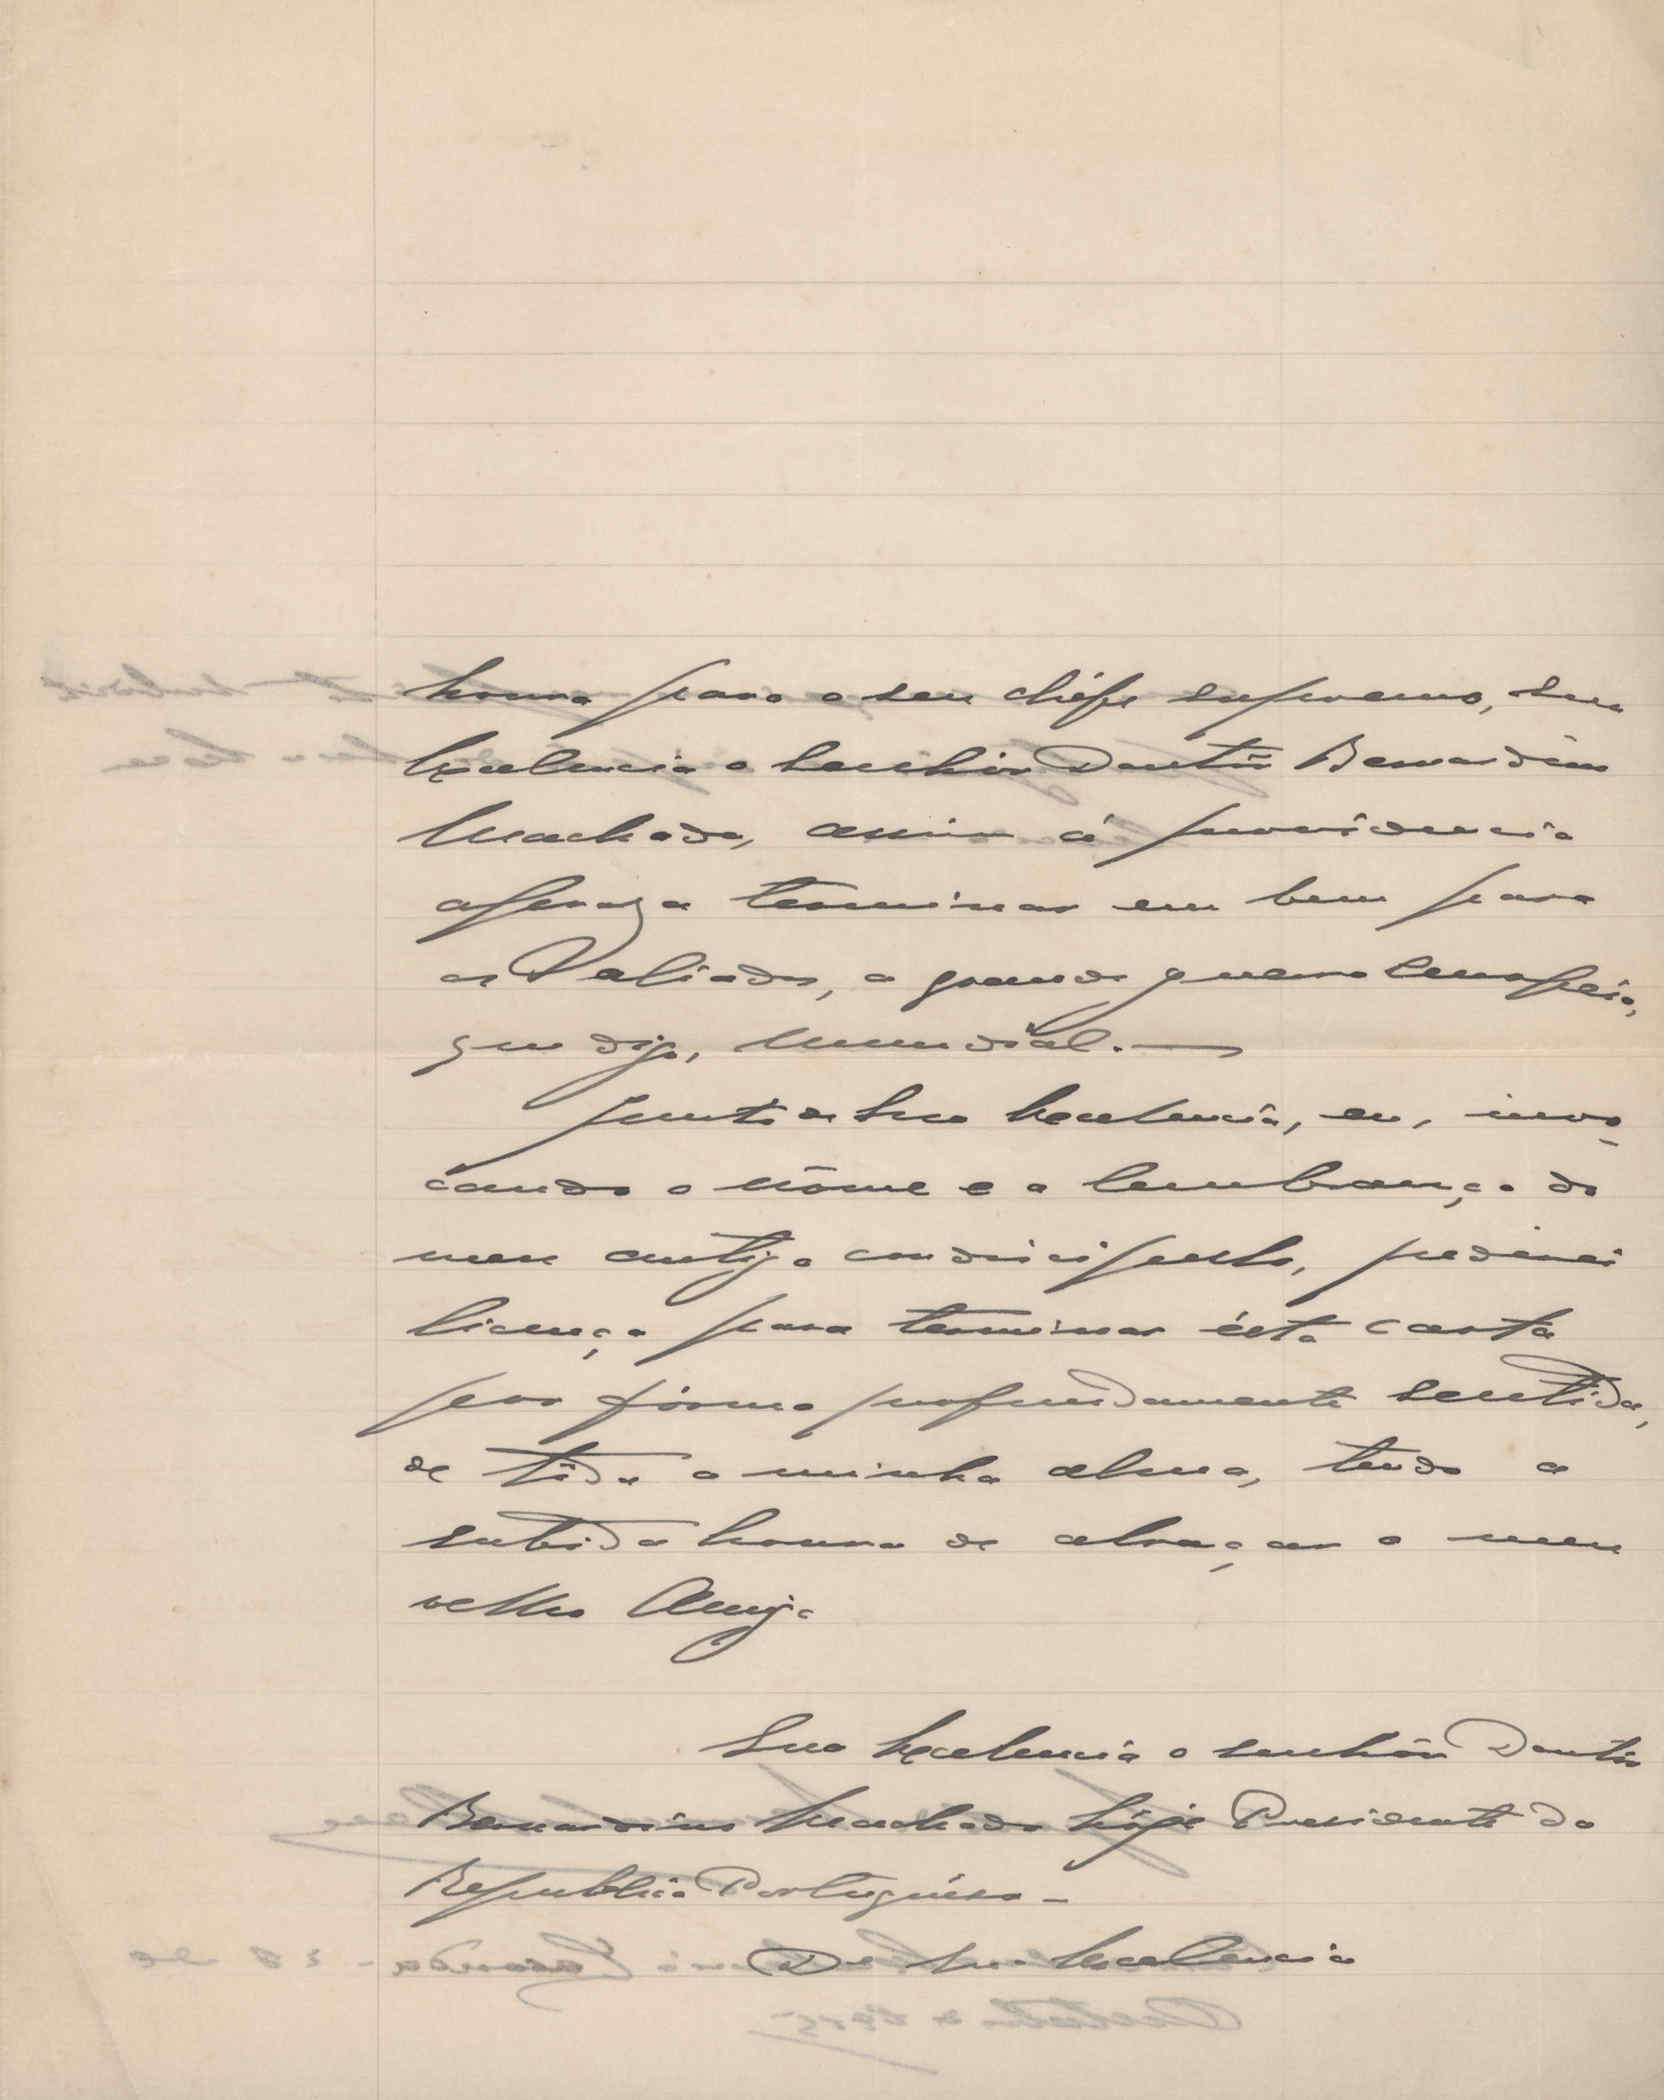 honra para o seu chéfe supremo, sua
Excelencia o Senhôr Doutôr Bernardino
Machado, assim á providencia
apraza terminar em bem para
os Valiados, a grande guerra Européia,
que digo, Mundial. —
Junto de Sua Excelencia, eu, invo-
cando o nôme e a lembrança do
meu antigo condiscipulo, pedirei
licença para terminar ésta carta
por fórma profundamente sentida,
de tôda a minha alma, tendo a
subida honra de abraçar o meu
velho Amigo
Sua Excelencia o senhôr Doutôr
Bernardino Machado hôje Presidente da
Republica Portuguêsa -
De Sua Excelencia